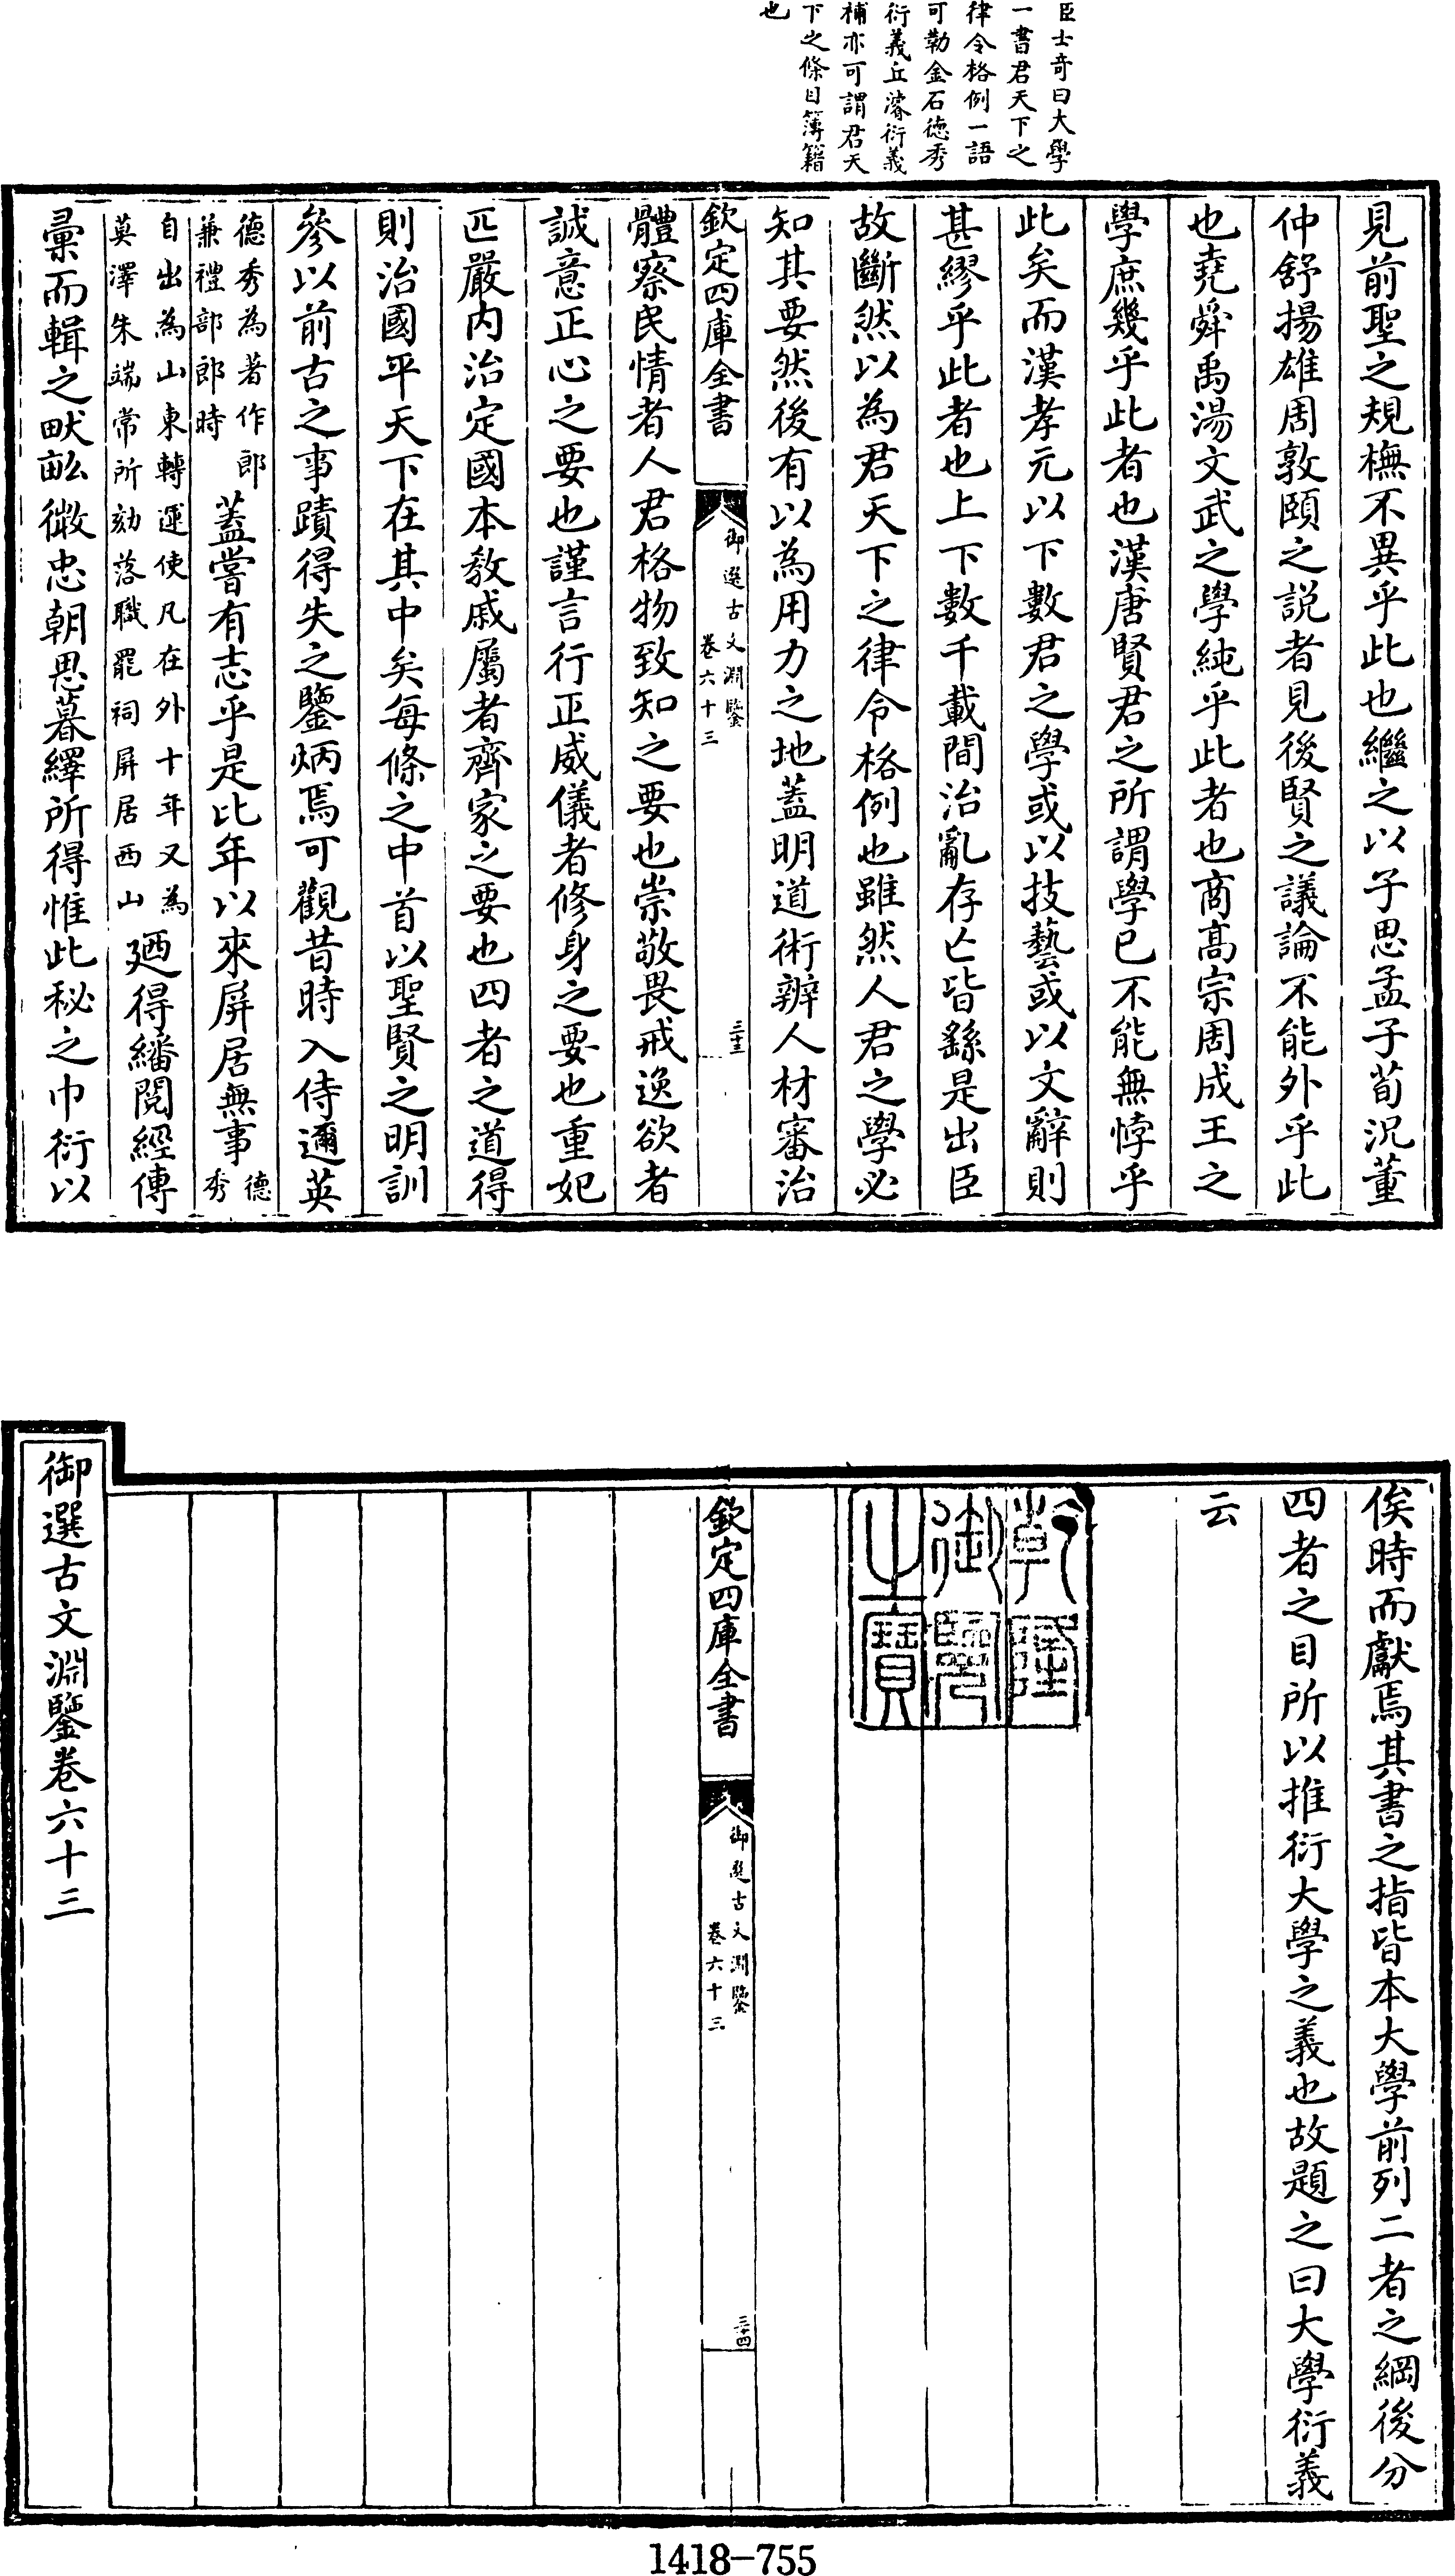 臣士奇曰大學
一書君天下之
律令格例一語
可勒金石德秀
衍義丘濬衍義
補亦可謂君天
下之條目簿籍
也
見前聖之規橅不異乎此也繼之以子思孟子荀況董
仲舒揚雄周敦頤之說者見後賢之議論不能外乎此
也堯舜禹湯文武之學純乎此者也商高宗周成王之
學庶幾乎此者也漢唐賢君之所謂學已不能無悖乎
此矣而漢孝元以下數君之學或以技藝或以文辭則
甚繆乎此者也上下數千載間治亂存亡皆繇是出臣
故斷然以為君天下之律令格例也雖然人君之學必
知其要然後有以為用力之地蓋明道術辨人材審治
欽定四庫全書
御選古文淵鑒
卷六十三
三十三
體察民情者人君格物致知之要也崇敬畏戒逸欲者
誠意正心之要也謹言行正威儀者修身之要也重妃
匹嚴內治定國本教戚屬者齊家之要也四者之道得
則治國平天下在其中矣每條之中首以聖賢之明訓
參以前古之事蹟得失之鑒炳焉可觀昔時入侍邇英
德秀為著作郎
兼禮部郎時
蓋嘗有志乎是比年以來屏居無事
德
秀
自出為山東轉運使凡在外十年又為
莫澤朱端常所劾落職罷祠屏居西山
廼得繙閱經傳
彙而輯之畎畝微忠朝思暮繹所得惟此秘之巾衍以
俟時而獻焉其書之指皆本大學前列二者之綱後分
四者之目所以推衍大學之義也故題之曰大學衍義
云
乾隆
御覽
之寶
欽定四庫全書
御選古文淵鑒
卷六十三
三十四
御選古文淵鑒卷六十三
1418-755